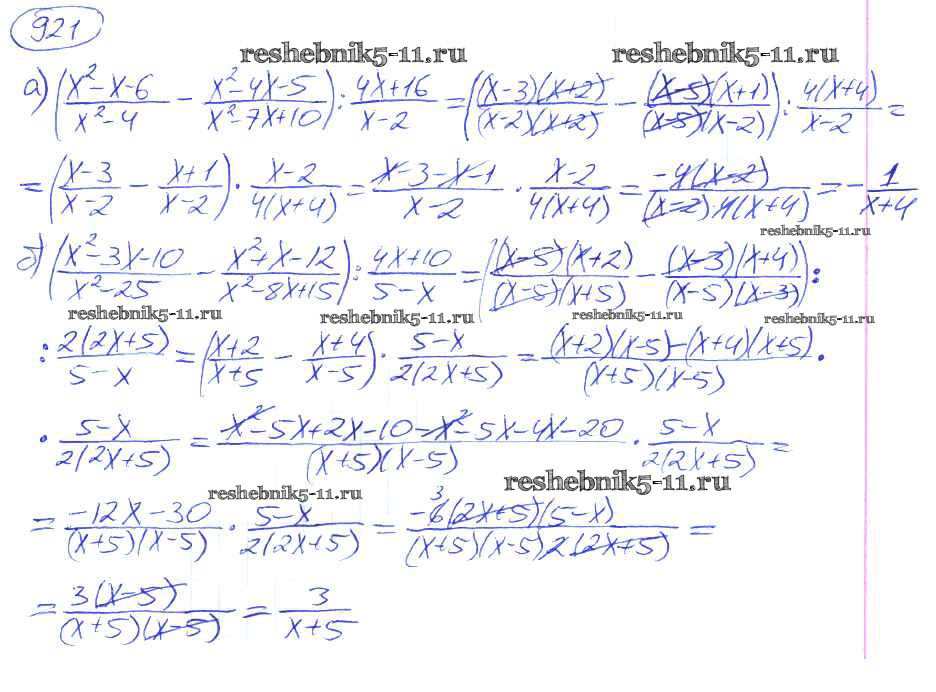 921
reshebnik5-11.ru reshebnik5-11.ru
а) ((x²-x-6)/(x²-4) - (x²-4x-5)/(x²-7x+10)) : (4x+16)/(x-2) = (((x-3)(x+2))/((x-2)(x+2)) - ((x-5)(x+1))/((x-5)(x-2))) : (4(x+4))/(x-2) =
= ((x-3)/(x-2) - (x+1)/(x-2)) · (x-2)/(4(x+4)) = (x-3-x-1)/(x-2) · (x-2)/(4(x+4)) = (-4(x-2))/((x-2)4(x+4)) = -1/(x+4)
reshebnik5-11.ru
б) ((x²-3x-10)/(x²-25) - (x²+x-12)/(x²-8x+15)) : (4x+10)/(5-x) = (((x-5)(x+2))/((x-5)(x+5)) - ((x-3)(x+4))/((x-5)(x-3))) :
reshebnik5-11.ru reshebnik5-11.ru reshebnik5-11.ru reshebnik5-11.ru
: (2(2x+5))/(5-x) = ((x+2)/(x+5) - (x+4)/(x-5)) · (5-x)/(2(2x+5)) = ((x+2)(x-5)-(x+4)(x+5))/((x+5)(x-5)) ·
· (5-x)/(2(2x+5)) = (x²-5x+2x-10-x²-5x-4x-20)/((x+5)(x-5)) · (5-x)/(2(2x+5)) =
reshebnik5-11.ru reshebnik5-11.ru
3
= (-12x-30)/((x+5)(x-5)) · (5-x)/(2(2x+5)) = (-6(2x+5)(5-x))/((x+5)(x-5)2(2x+5)) =
= (3(x-5))/((x+5)(x-5)) = 3/(x+5)